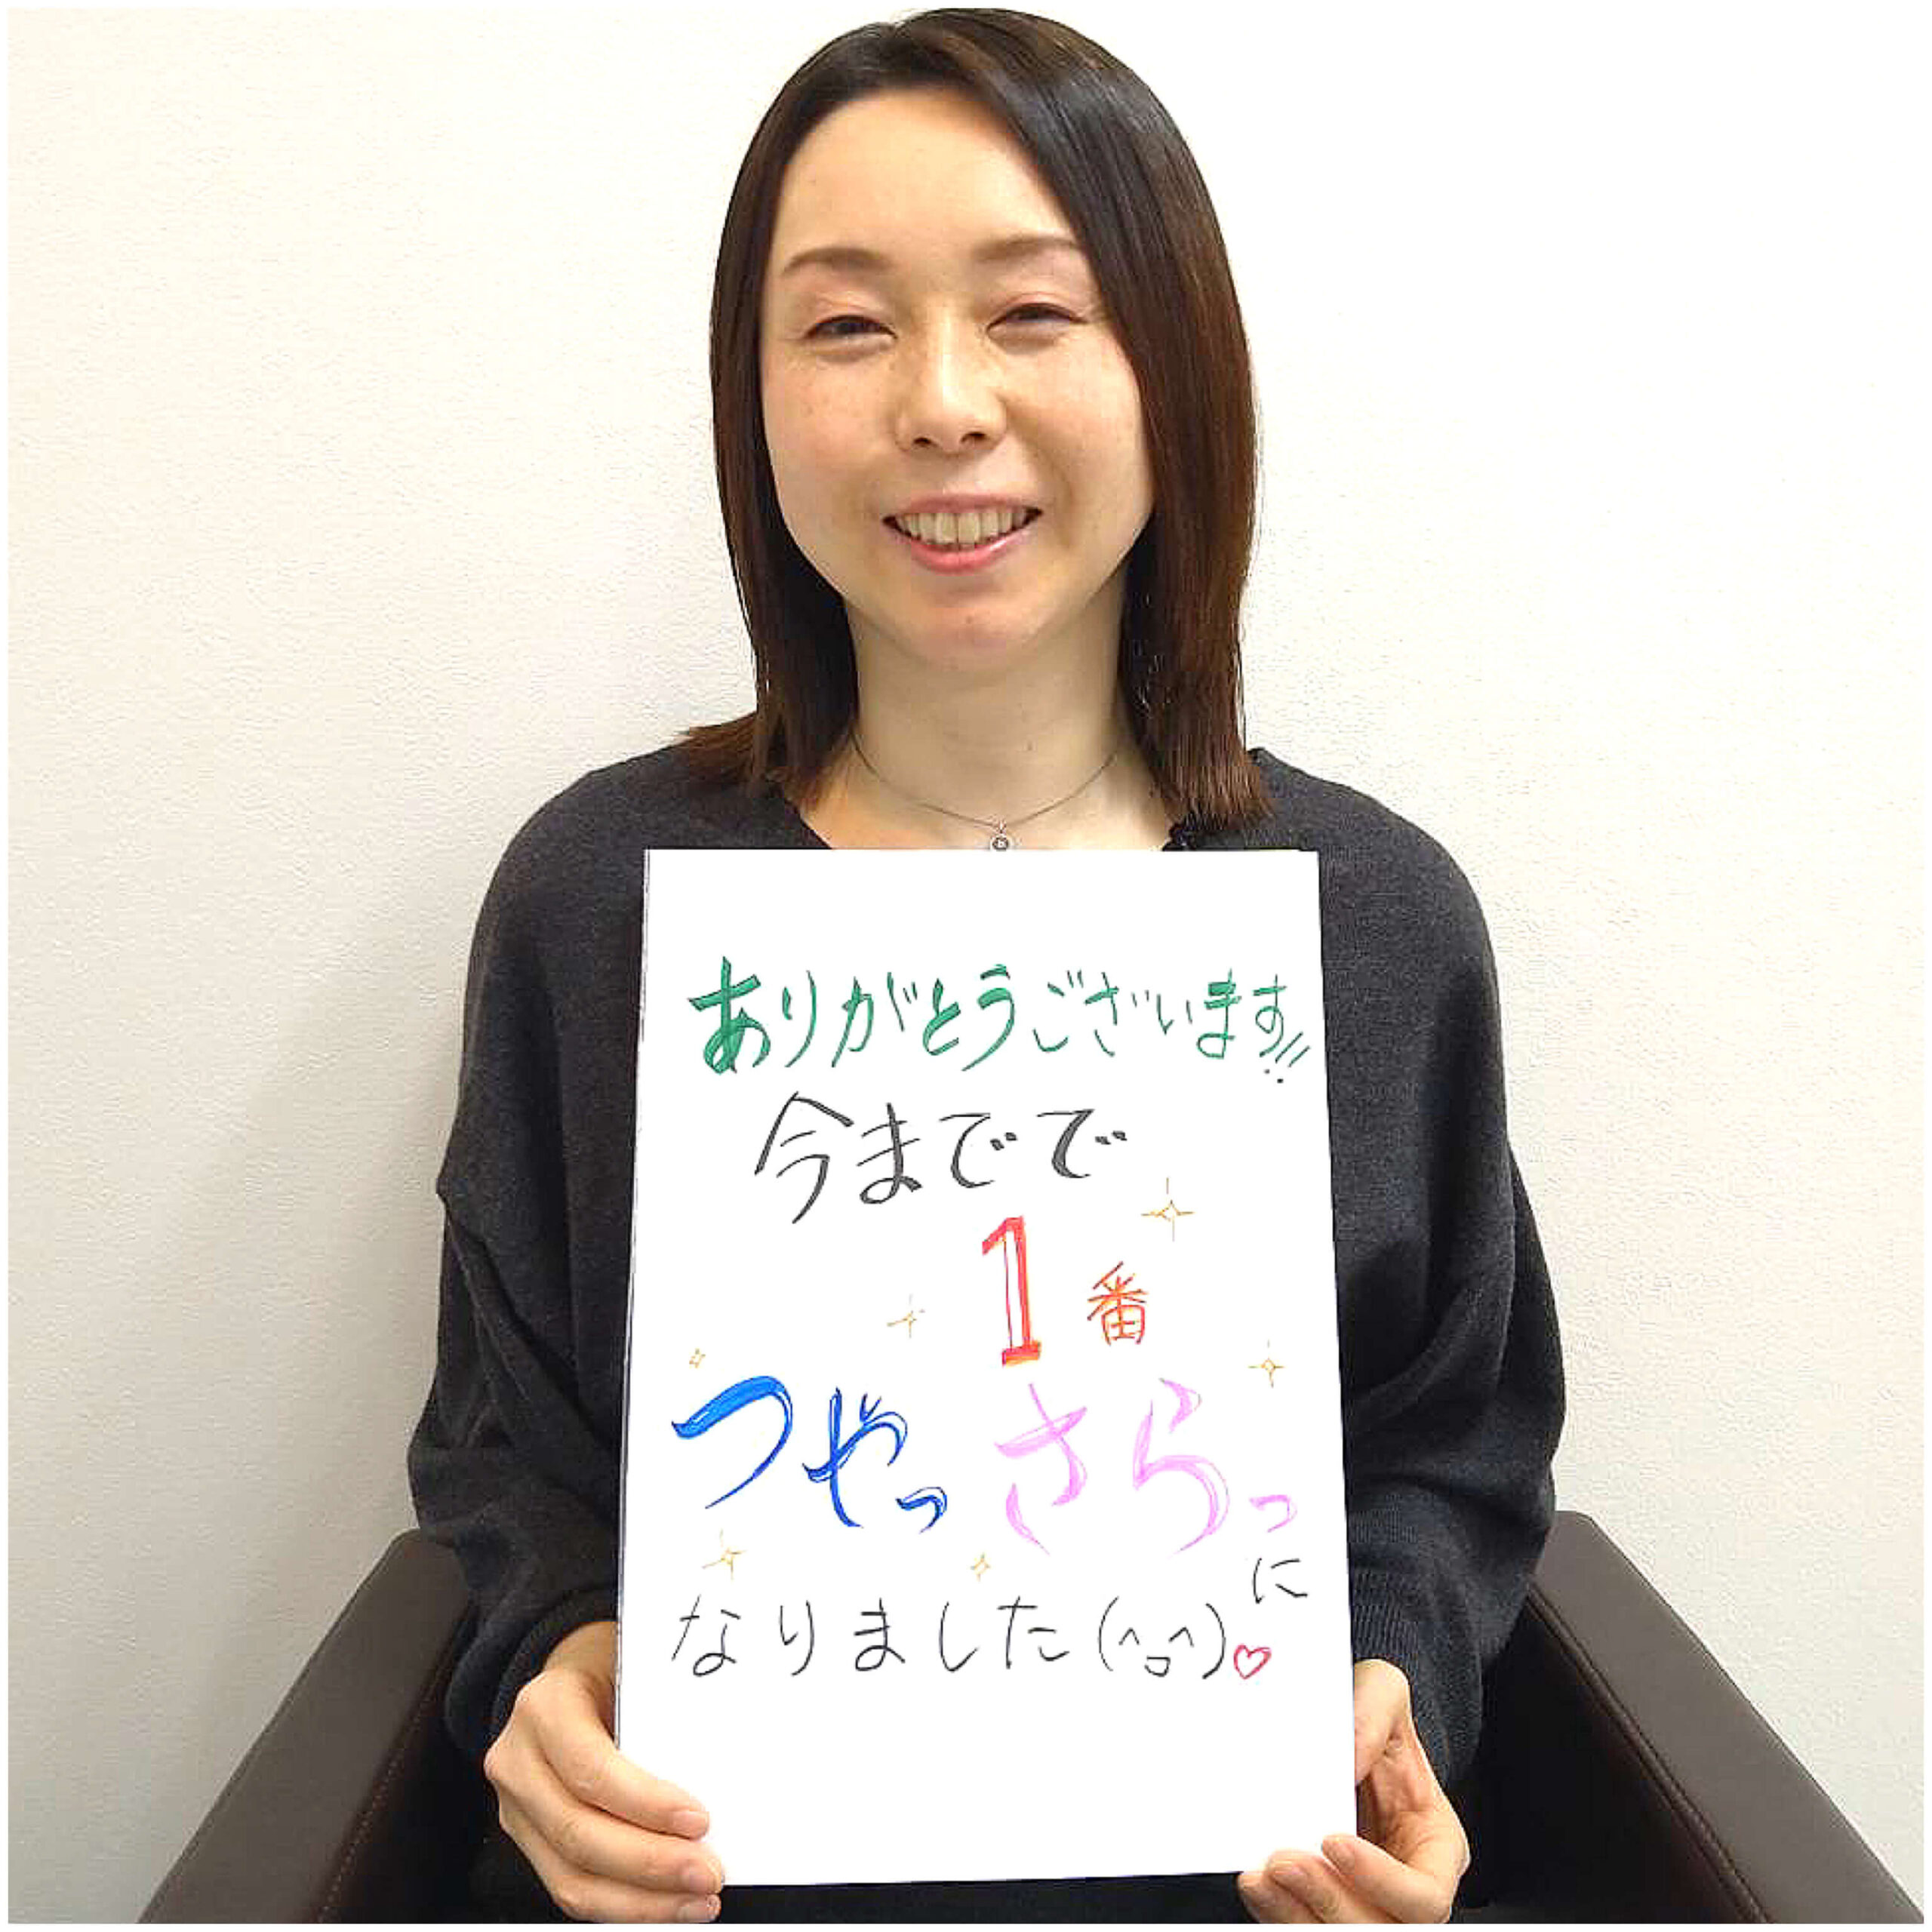 ありがとうございます!!
今までで
1番
つやっさらっに
なりました(^o^)♡